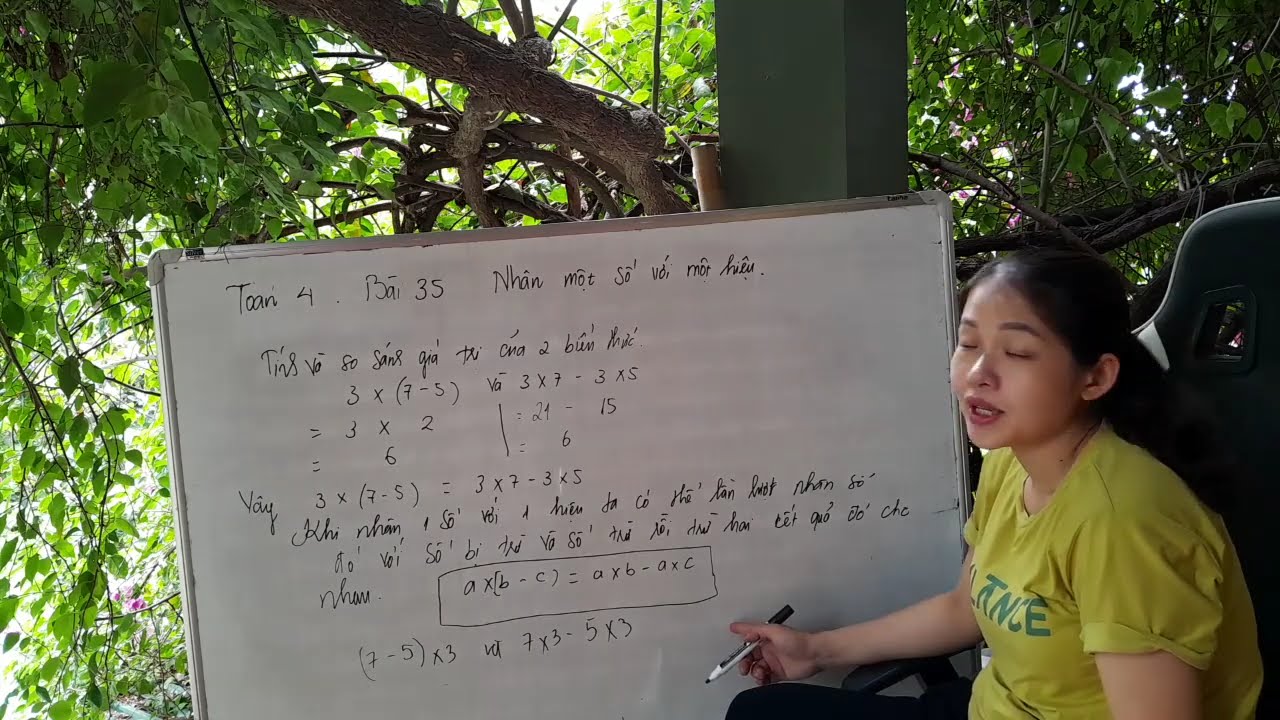 Toán 4. Bài 35 Nhân một số với một hiệu.
Tính và so sánh giá trị của 2 biểu thức.
3 x (7 - 5) và 3 x 7 - 3 x 5
= 3 x 2 = 21 - 15
= 6 = 6
Vậy 3 x (7 - 5) = 3 x 7 - 3 x 5
Khi nhân 1 số với 1 hiệu ta có thể lần lượt nhân số
đó với số bị trừ và số trừ rồi trừ hai kết quả đó cho
nhau.
a x (b - c) = a x b - a x c
(7 - 5) x 3 và 7 x 3 - 5 x 3
LANCE